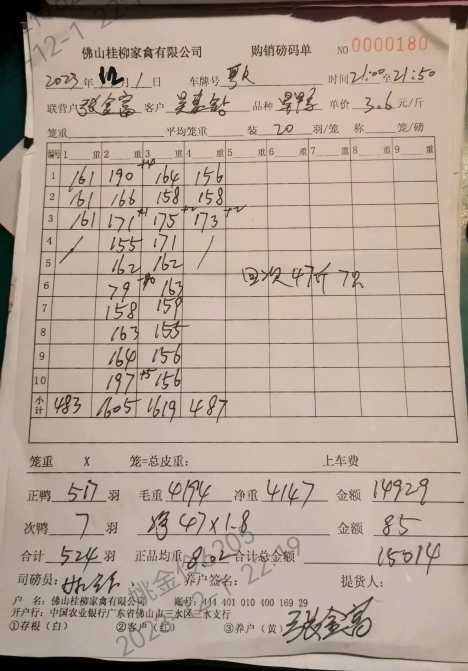 佛山桂柳家禽有限公司 购销磅码单 NO 0000180
2023年12月1日 车牌号 时间21:00至21:50
联营户 张金富 客户 品种 单价 3.6 元/斤
笼重 平均笼重 装 20 羽/笼 称 笼/磅
编号 1 重 2 重 3 重 4 重 5 重 6 重 7 重 8 重 9 重
1 161 190 164 156
2 161 166 158 158
3 161 171 175 173
4 / 155 171 /
5 162 162
回次 47斤 7只
6 79 163
7 158 159
8 163 155
9 164 156
10 197 +5 156
小计 483 1605 1619 487
笼重 X 笼=总皮重: 上车费
正鸭 517 羽 毛重 4194 净重 4147 金额 14929
次鸭 7 羽 净 47×1.8 金额 85
合计 524 羽 正品均重 8.02 合计总金额 15014
司磅员: 养户签名: 提货人:
户 名: 佛山桂柳家禽有限公司 账号: 444 401 010 400 169 29
开户行: 中国农业银行广东省佛山市三水区三水支行
①存根(白) ②客户(红) ③养户(黄) 张金富